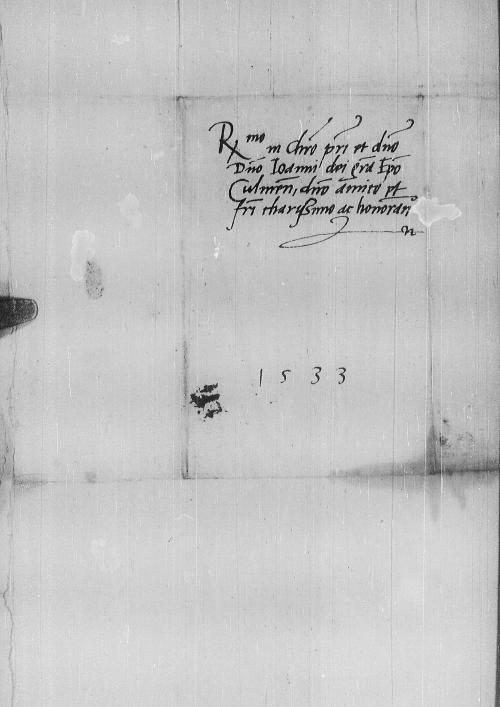 Rx mo in Chro pri et dno
Dno Ioanni dei gra Epo
Culmen, dno amico et
fri charissimo ac honoran
1533